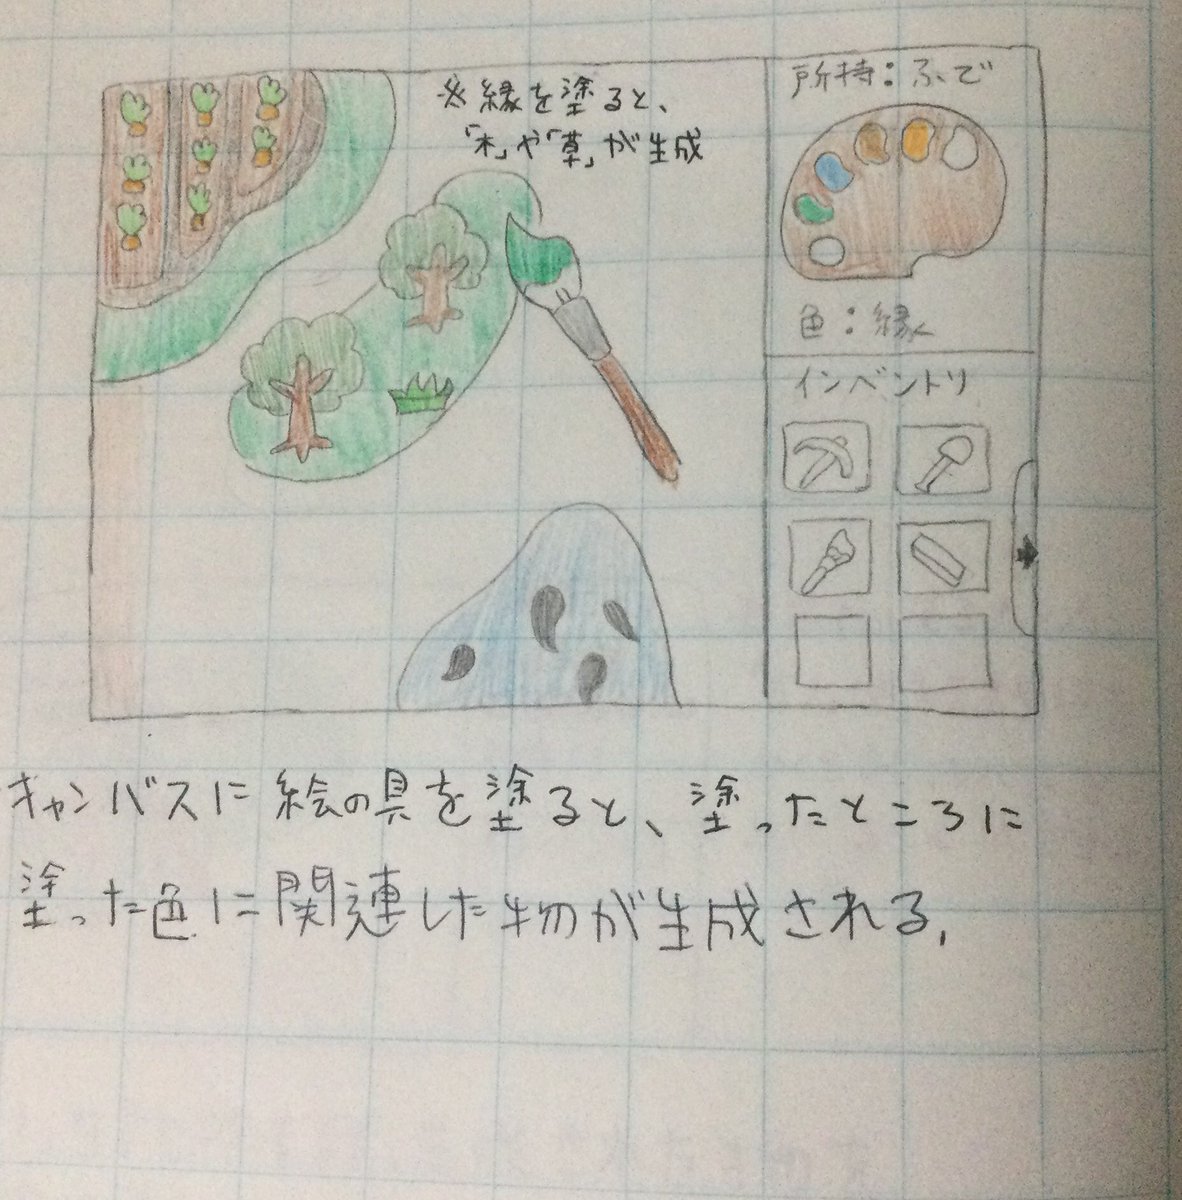 ※縁を塗ると、
「木」や「草」が生成
所持：ふで
色：縁
インベントリ
キャンバスに絵の具を塗ると、塗ったところに
塗った色に関連した物が生成される.